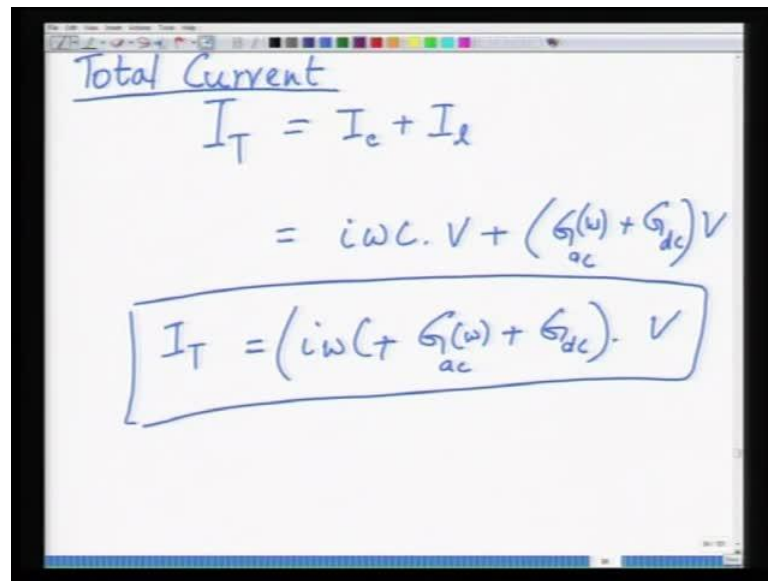 Total Current
I_T = I_c + I_l
= iωC. V + (G_ac(ω) + G_dc) V
I_T = (iωC + G_ac(ω) + G_dc). V